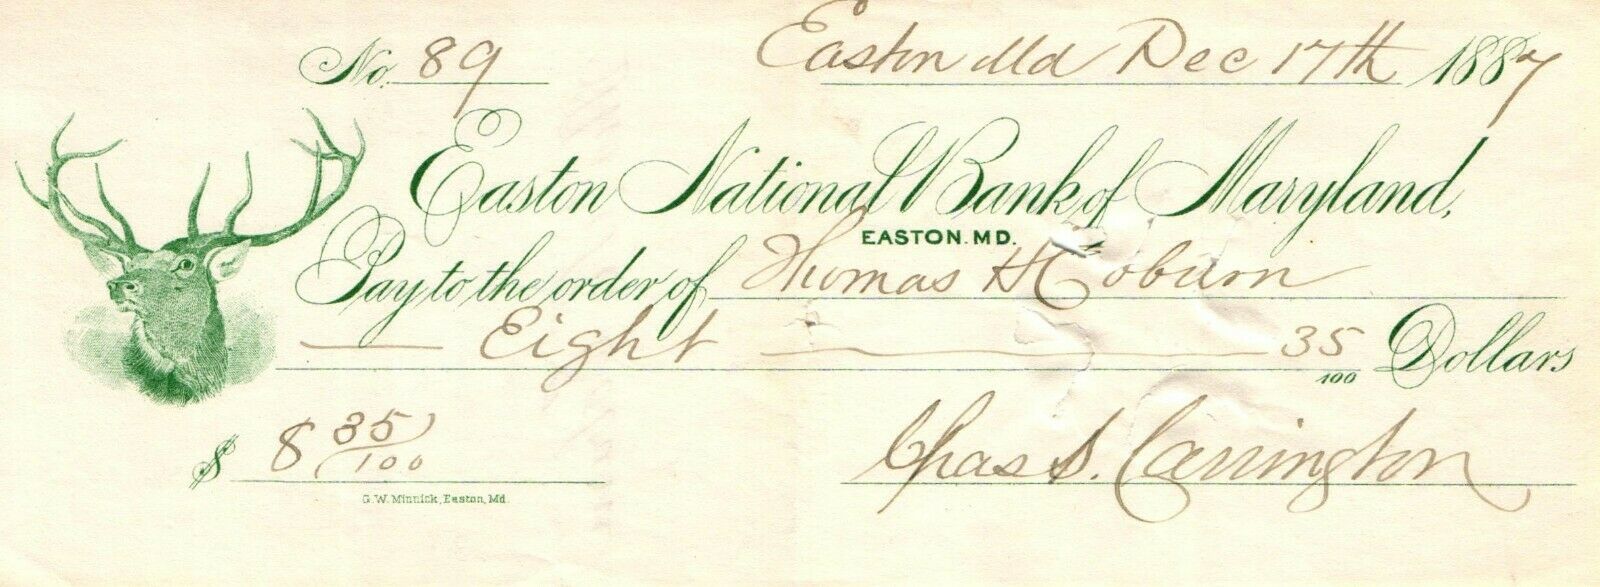 No. 89 Easton Md Dec 17th 1887
Easton National Bank of Maryland,
EASTON. MD.
Pay to the order of Thomas H Coburn
Eight 35/100 Dollars
$ 8 35/100 Chas S. Carrington
G. W. Minnick, Easton, Md.